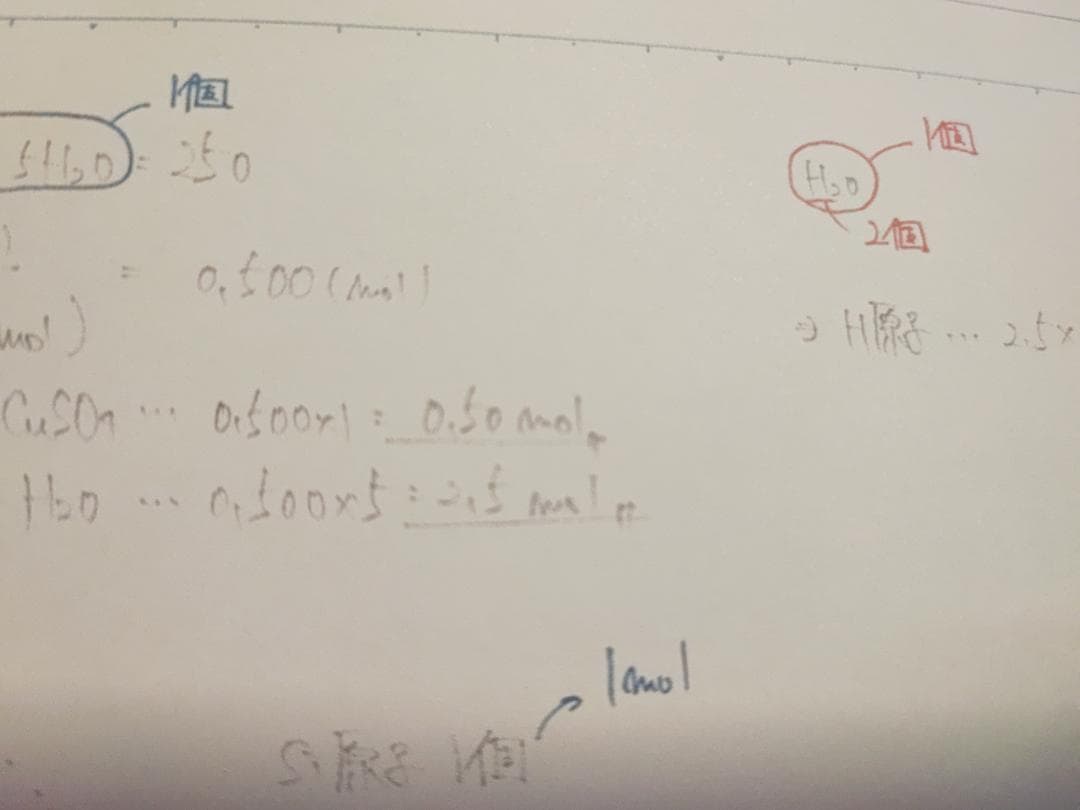 1個
5H₂O = 250
1個
H₂O
2個
= 0.500 (mol)
mol)
⇒ H原子 … 2.5×
CuSO₄ … 0.500×1 = 0.50 mol
H₂O … 0.500×5 = 2.5 mol
1mol
Si原子 1個